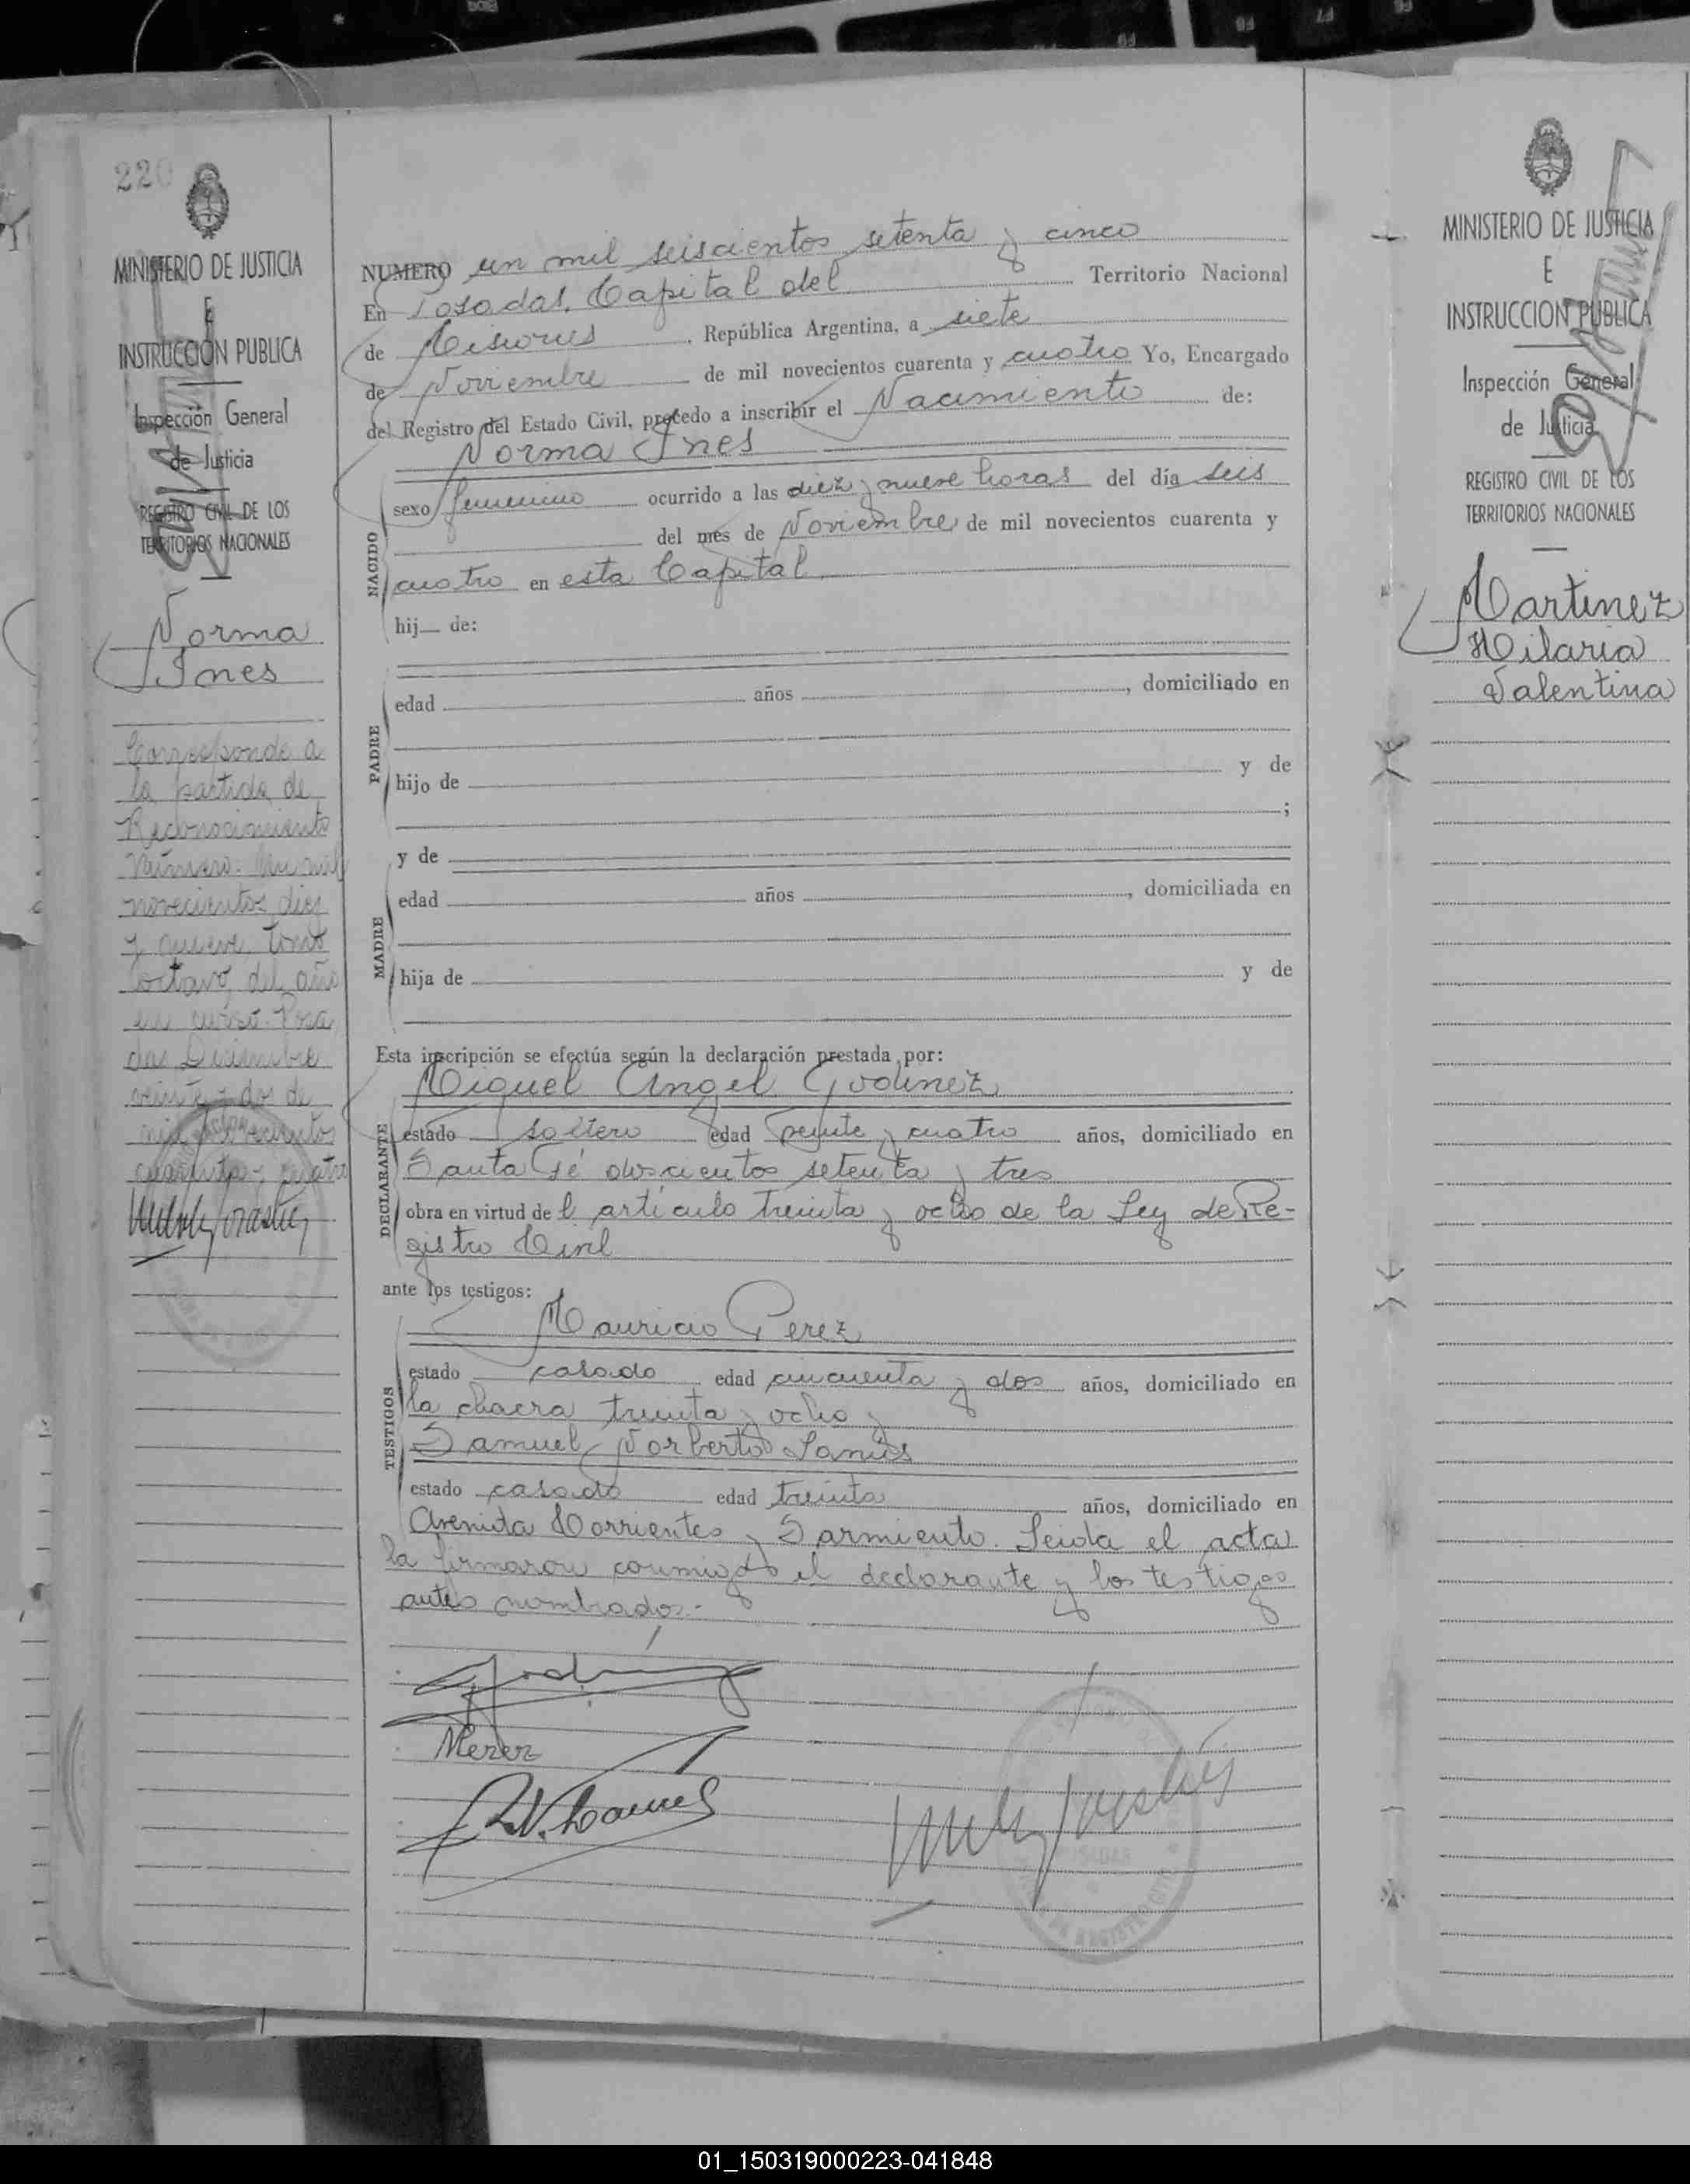 220
MINISTERIO DE JUSTICIA
E
INSTRUCCION PUBLICA
Inspección General
de Justicia
REGISTRO CIVIL DE LOS
TERRITORIOS NACIONALES
Norma
Ines
Corresponde a
la partida de
Reconocimiento
Número: Un mil
novecientos diez
y nueve, tomo
octavo, del año
en curso. Posa
das Diciembre
veinte y dos de
mil novecientos
cuarenta y cuatro
NUMERO un mil seiscientos setenta y cinco
En Posadas, Capital del Territorio Nacional
de Misiones , República Argentina, a siete
de Noviembre de mil novecientos cuarenta y cuatro Yo, Encargado
del Registro del Estado Civil, procedo a inscribir el Nacimiento de:
Norma Ines
NACIDO
sexo femenino ocurrido a las diez y nueve horas del día seis
del mes de Noviembre de mil novecientos cuarenta y
cuatro en esta Capital
hij de:
PADRE
edad años , domiciliado en
hijo de y de
;
y de
MADRE
edad años , domiciliada en
hija de y de
Esta inscripción se efectúa según la declaración prestada por:
Miguel Angel Godinez
DECLARANTE
estado soltero edad veinte y cuatro años, domiciliado en
Santa Fé doscientos setenta y tres
obra en virtud de l artículo treinta y ocho de la Ley de Re-
gistro Civil
ante los testigos:
Mauricio Perez
TESTIGOS
estado casado edad cincuenta y dos años, domiciliado en
la chacra treinta y ocho y
Samuel Norberto Lanús
estado casado edad treinta años, domiciliado en
Avenida Corrientes y Sarmiento. Leida el acta
la firmaron conmigo el declarante y los testigos
antes nombrados.-
MPerez
S.N. Lanús
POSADAS
MINISTERIO DE JUSTICIA
E
INSTRUCCION PUBLICA
Inspección General
de Justicia
REGISTRO CIVIL DE LOS
TERRITORIOS NACIONALES
Martinez
Hilaria
Valentina
01_150319000223-041848